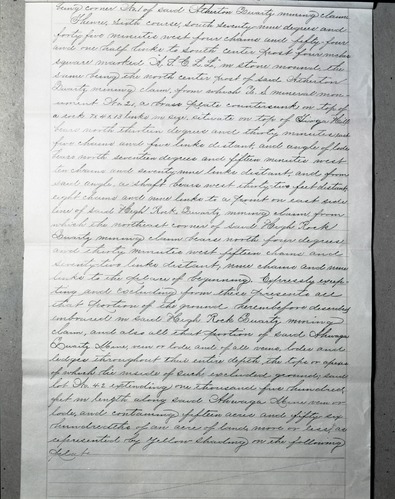 being corner No. 1 of said Atherton Quartz mining claim
Thence, sixth course, south seventy nine degrees and
forty five minutes west four chains and fifty four
and one half links to south center post four inches
square marked in stone mound the
same being the north center post of said Atherton
Quartz mining claim, from which U.S. mineral mon-
ument No. 21, a brass plate countersunk on top of
a rock links in size situate on top of Hill
bears north thirteen degrees and thirty minutes
five chains and five links distant and angle of lode
bears north seventeen degrees and fifteen minutes west
ten chains and seventy nine links distant, and from
said angle, a shaft bears west thirty two feet distant
eight chains and nine links to a point on east side
line of said High Rock Quartz mining claim from
which the northeast corner of said High Rock
Quartz mining claim bears north four degrees
and thirty minutes west fifteen chains and
seventy two links distant, nine chains and nine
links to the place of beginning. Expressly excep-
ting and excluding from these presents all
that portion of the ground hereinbefore described
embraced in said High Rock Quartz mining
claim, and also all that portion of said
Quartz Mine, vein or lode, and of all veins, lodes and
ledges throughout their entire depth, the tops or apexes
of which lie inside of such excluded ground; said
lot No. 42 extending one thousand five hundred
feet in length along said Mine vein or
lode, and containing fifteen acres and fifty six
hundredths of an acre of land, more or less, as
represented by yellow shading on the following
plat: